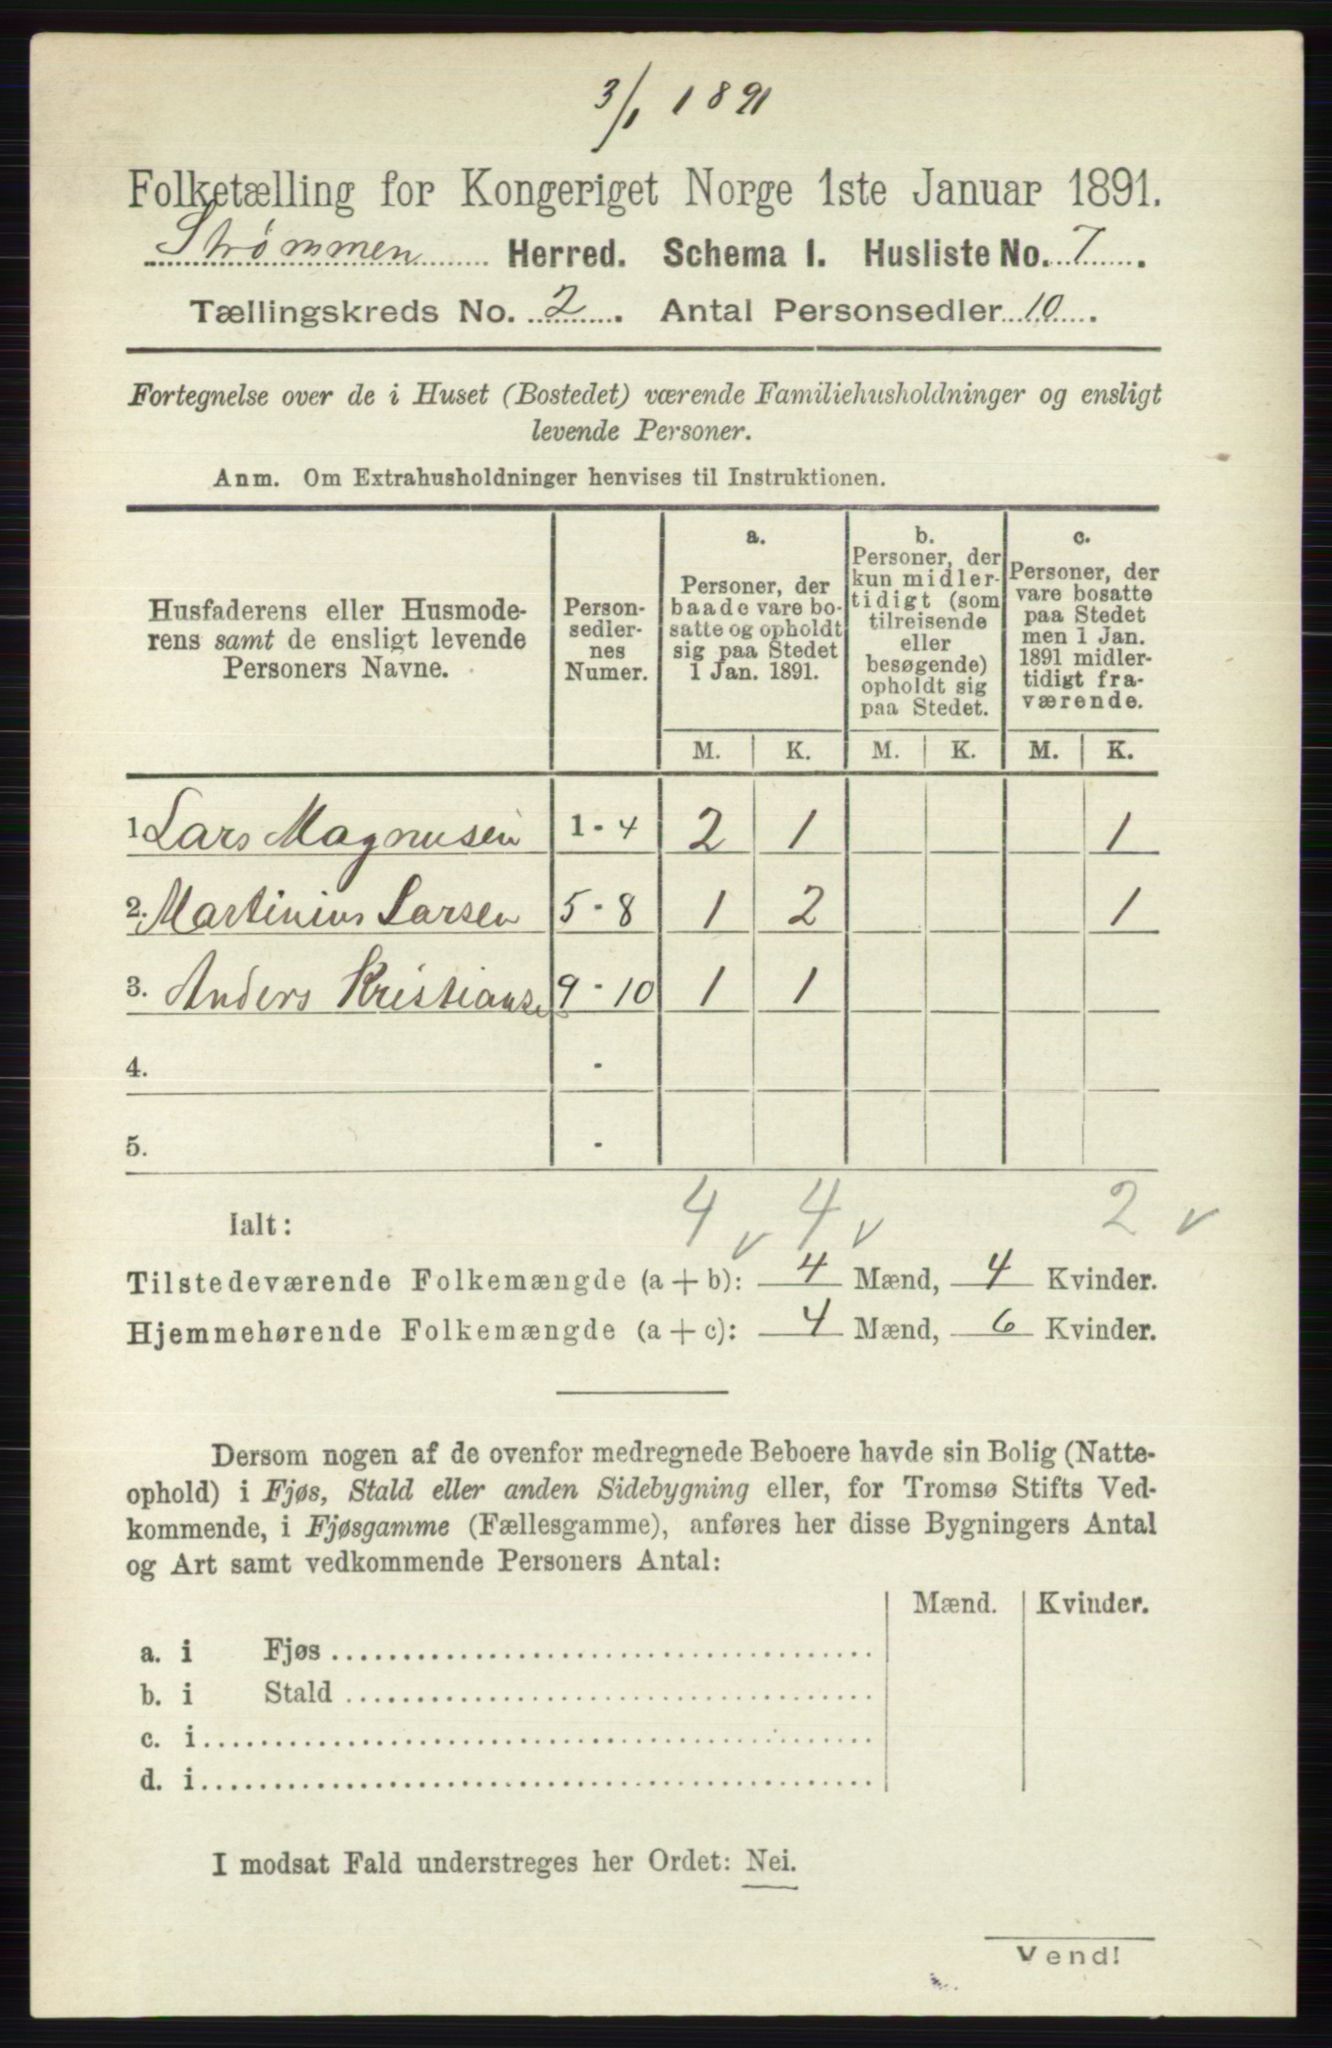 3/1 1891
Folketælling for Kongeriget Norge 1ste Januar 1891.
Strømmen Herred. Schema I. Husliste No. 7.
Tællingskreds No. 2. Antal Personsedler 10.
Fortegnelse over de i Huset (Bostedet) værende Familiehusholdninger og ensligt
levende Personer.
Anm. Om Extrahusholdninger henvises til Instruktionen.
Husfaderens eller Husmode-
rens samt de ensligt levende
Personers Navne.
Person-
sedler-
nes
Numer.
a.
Personer, der
baade vare bo-
satte og opholdt
sig paa Stedet
1 Jan. 1891.
b.
Personer, der
kun midler-
tidigt (som
tilreisende
eller
besøgende)
opholdt sig
paa Stedet.
c.
Personer, der
vare bosatte
paa Stedet
men 1 Jan.
1891 midler-
tidigt fra-
værende.
M. K. M. K. M. K.
1. Lars Magnusen 1 - 4 2 1 1
2. Martinius Larsen 5 - 8 1 2 1
3. Anders Kristianse 9 - 10 1 1
4. -
5. -
Ialt: 4 v 4 v 2 v
Tilstedeværende Folkemængde (a + b): 4 Mænd, 4 Kvinder.
Hjemmehørende Folkemængde (a + c): 4 Mænd, 6 Kvinder.
Dersom nogen af de ovenfor medregnede Beboere havde sin Bolig (Natte-
ophold) i Fjøs, Stald eller anden Sidebygning eller, for Tromsø Stifts Ved-
kommende, i Fjøsgamme (Fællesgamme), anføres her disse Bygningers Antal
og Art samt vedkommende Personers Antal:
Mænd. Kvinder.
a. i Fjøs
b. i Stald
c. i
d. i
I modsat Fald understreges her Ordet: Nei.
Vend!